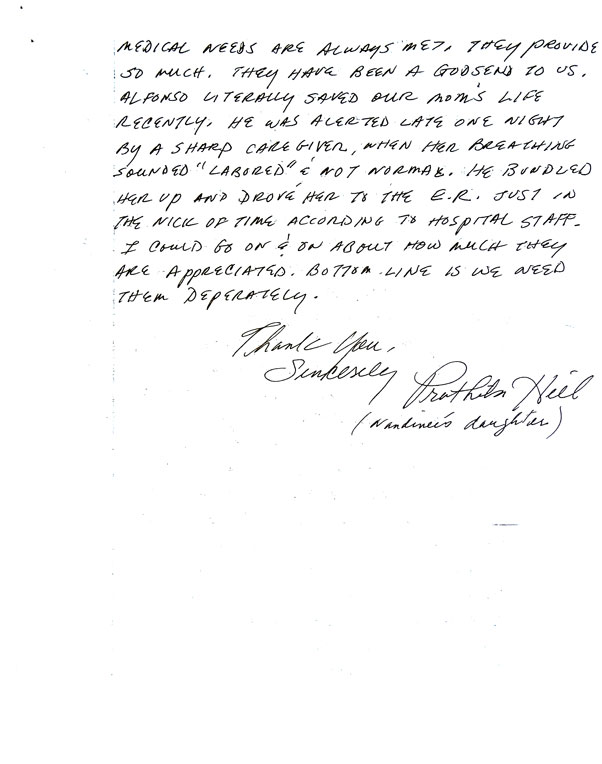 MEDICAL NEEDS ARE ALWAYS MET. THEY PROVIDE
SO MUCH. THEY HAVE BEEN A GODSEND TO US.
ALFONSO LITERALLY SAVED OUR MOM'S LIFE
RECENTLY. HE WAS ALERTED LATE ONE NIGHT
BY A SHARP CAREGIVER, WHEN HER BREATHING
SOUNDED "LABORED" & NOT NORMAL. HE BUNDLED
HER UP AND DROVE HER TO THE E.R. JUST IN
THE NICK OF TIME ACCORDING TO HOSPITAL STAFF.
I COULD GO ON & ON ABOUT HOW MUCH THEY
ARE APPRECIATED. BOTTOM LINE IS WE NEED
THEM DEPERATELY.
Thank You,
Sincerely
(Nandinei's daughter)